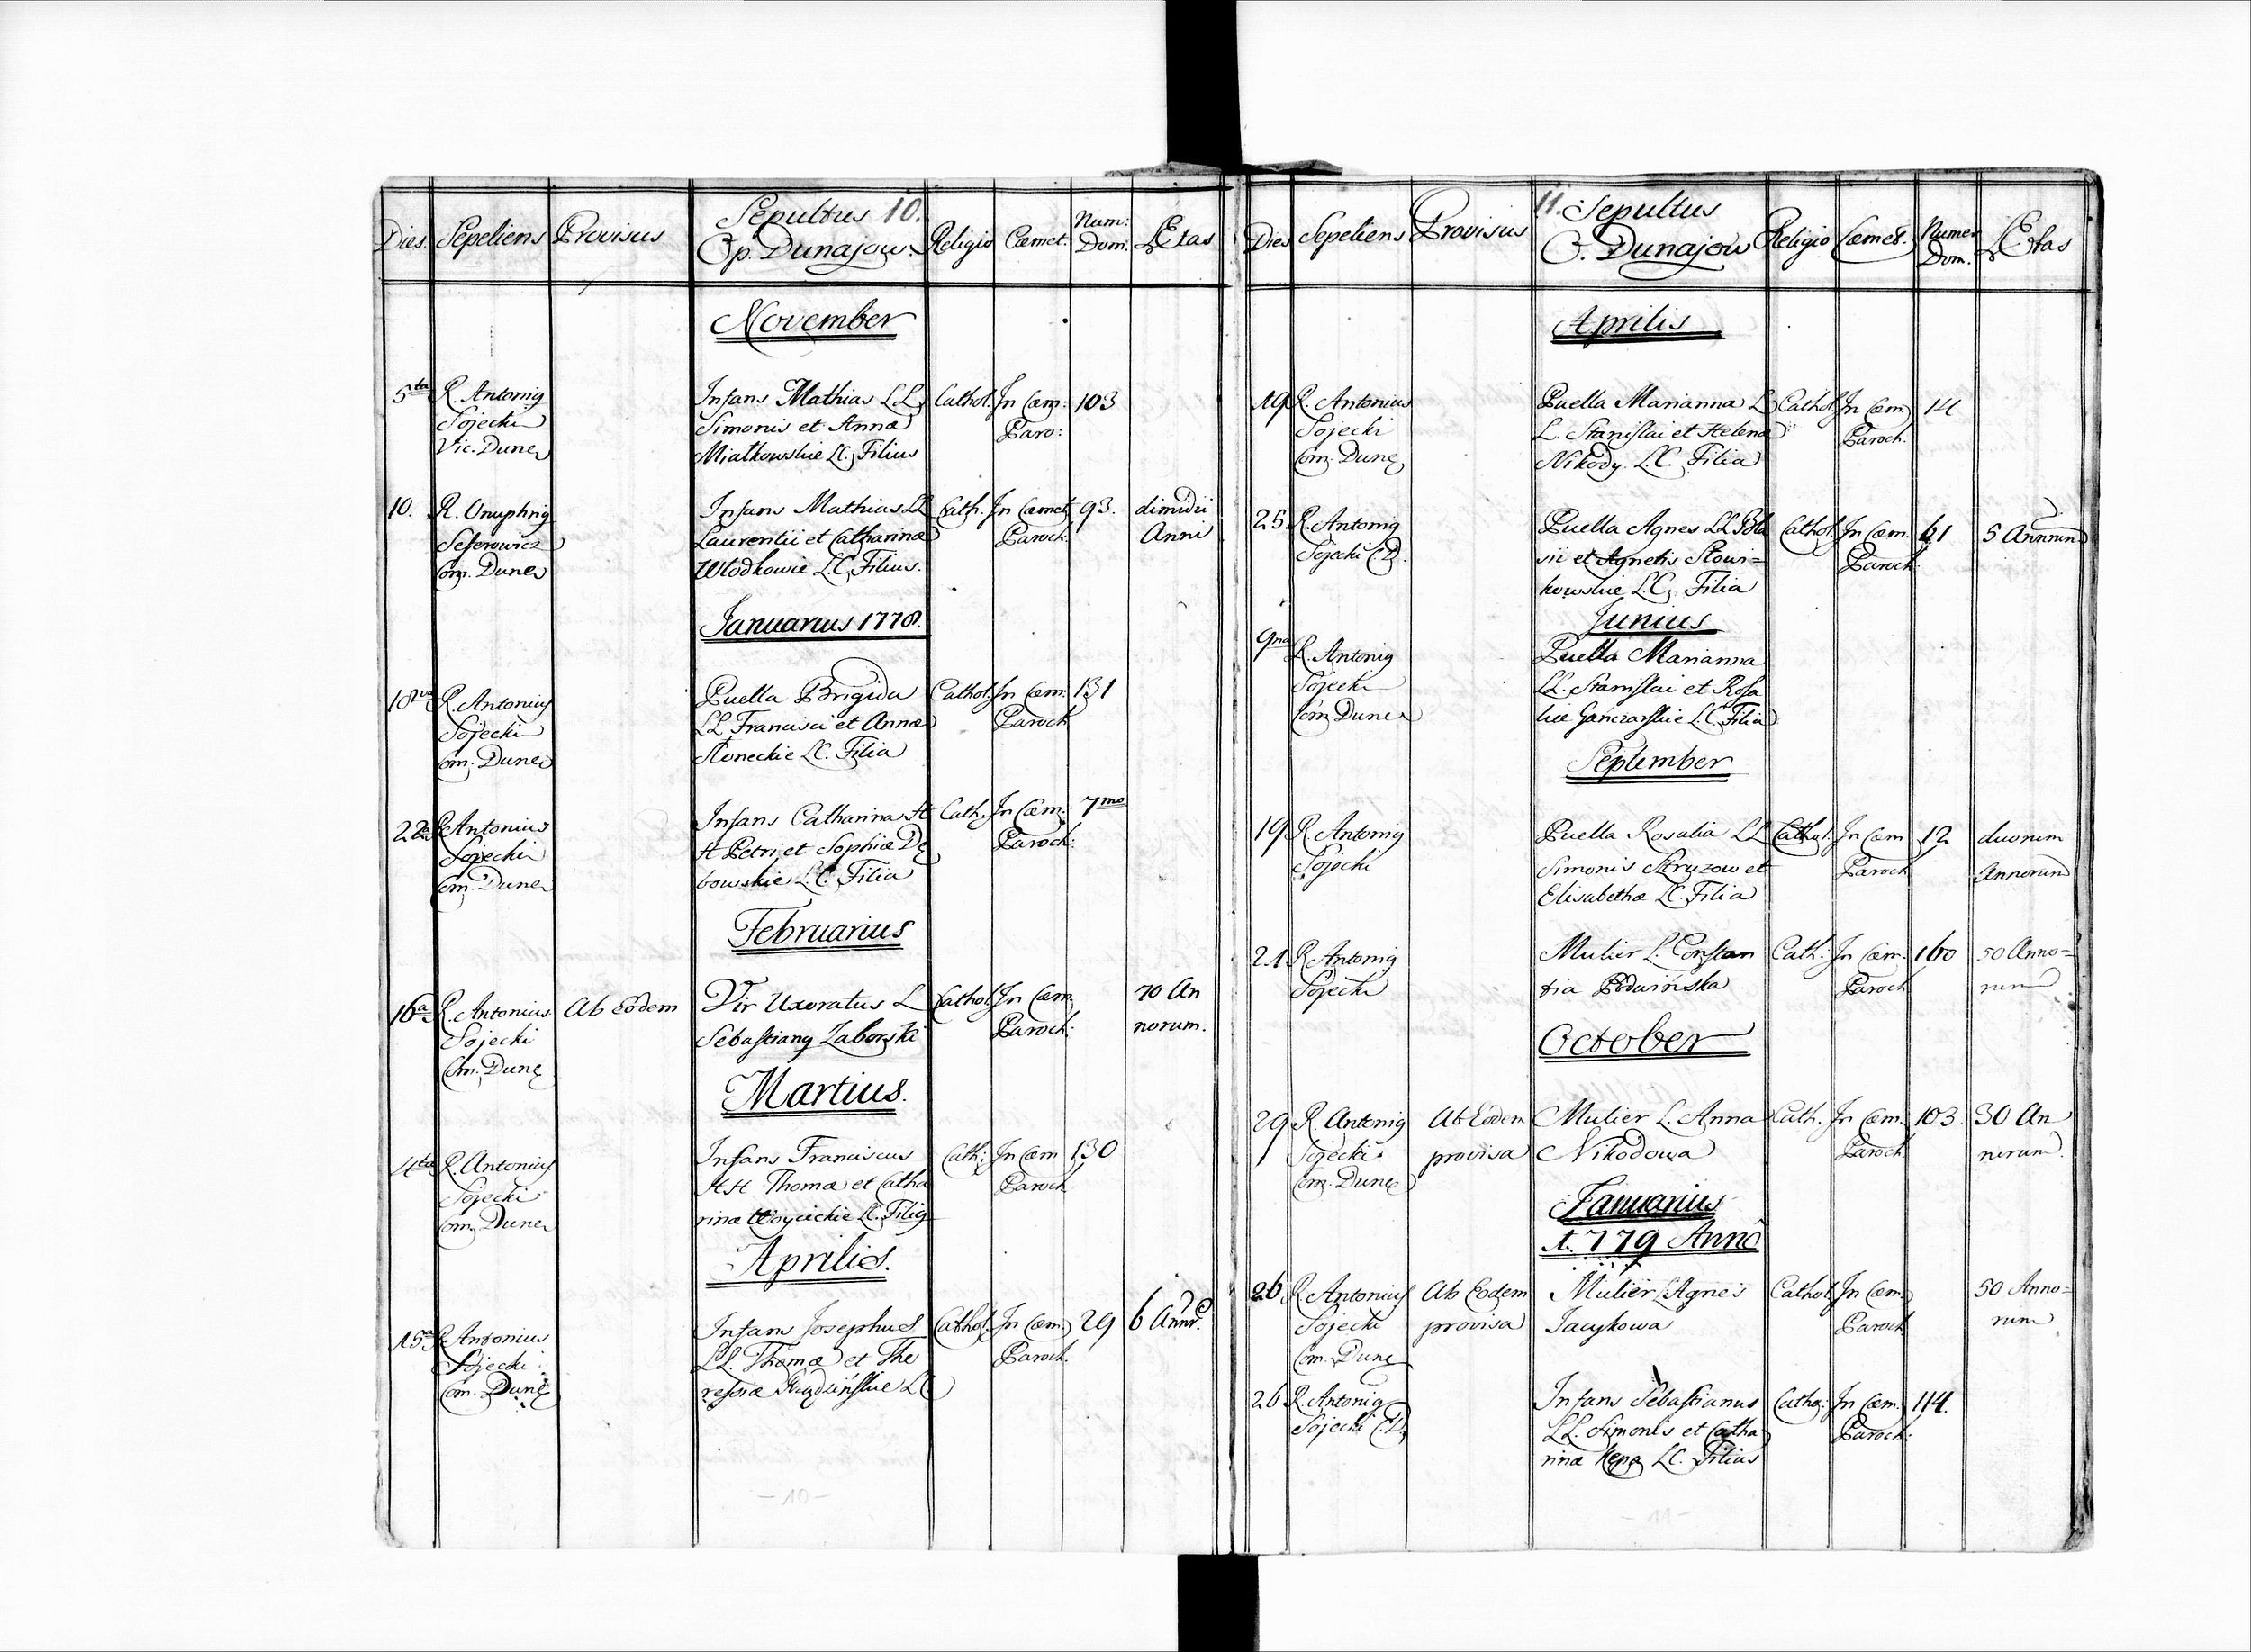 Dies. Sepeliens Provisus Sepultus 10. Op. Dunajow. Religio Cæmet: Num: Dom: Ætas
November
5ta R. Antonig Infans Mathias LL Cathol. In Cæm: 103
Sojecki Simonis et Annæ Paro:
Vic. Dune Miatkowskie LC. Filius
10. R. Onuphrig Infans Mathias LL Cath. In Cæmet. 93. dimidii
Seferowicz Laurentii et Catharinæ Paroch: Anni
Com. Dune Wlodkowie L.C. Filius.
Januarius 1778.
18va R. Antonius Puella Brigida Cathol. In Cæm: 131
Sojecki LL Francisci et Annæ Paroch
Com. Dune Sloneckie LC. Filia
22da R. Antonius Infans Catharina H Cath. In Cæm: 7mo
Sojecki H Petri et Sophiæ Dę Paroch:
Com. Dune bowskie L.C. Filia
Februarius
16a R. Antonius Ab Eodem Vir Uxoratus L Cathol. In Cæm. 70 An
Sojecki Sebastiang Zaborski Paroch: norum.
Com. Dune
Martius.
4ta R. Antonius Infans Franciscus Cath: In Cæm 130
Sojecki HH Thomæ et Catha Paroch
Com Dune rinæ Woycickie LC. Filig
Aprilis.
15a R Antonius Infans Josephus Cathol. In Cæm. 29 6 Annor.
Sojecki LL. Thomæ et The Paroch.
Com. Dune resiæ LC
- 10 -
Dies Sepeliens Provisus 11. Sepultus O. Dunajow Religio Cæmet. Numer Dom. Ætas
Aprilis
19 R. Antonius Puella Marianna L Cathol. In Cæm 14
Sojecki L. Stanislai et Helenæ Paroch.
Com. Dune Nikody. L.C. Filia
25. R. Antonig Puella Agnes LL Bla Cathol. In Cæm. 61 5 Annorum
Sojecki C.D. sii et Agnetis Slowi= Paroch:
kowskie L.C. Filia
Junius
9na R. Antonig Puella Marianna
Sojecki LL. Stanislai et Rosa
Com. Dune liæ Ganczarskie L.C. Filia
September
19. R Antonig Puella Rosalia LL Cathol. In Cæm 12 duorum
Sojecki Simonis et Paroch Annorum
Elisabethæ LC. Filia
21. R Antonig Mulier L. Constan Cath. In Cæm. 160 50 Anno=
Sojecki tia Podwinska Paroch rum
October
29 R. Antonig Ab Eodem Mulier L. Anna Cath. In Cæm. 103. 30 An
Sojecki provisa Nikodowa Paroch norum.
Com. Dune
Januarius
1.779 Anno
26 R Antonius Ab Eodem Mulier L. Agnes Cathol In Cæm. 50 Anno=
Sojecki provisa Jacykowa Paroch rum
Com. Dune
26 R. Antonig Infans Sebastianus Catho: In Cæm. 114.
Sojecki C.D. LL. Simonis et Catha Paroch:
rinæ Kępa LC. Filius
- 11 -